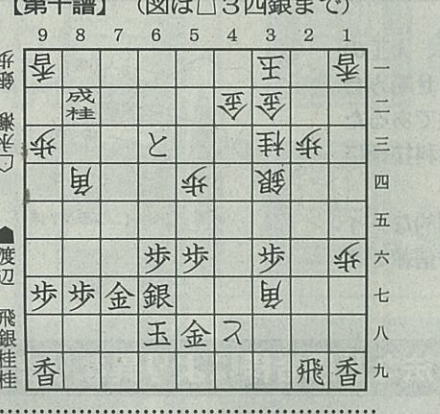 【第十譜】 (図は□3四銀まで)
9 8 7 6 5 4 3 2 1
香 玉 香 一
成桂 金 金 二
歩 と 桂 歩 三
角 歩 銀 四
五
歩 歩 歩 歩 六
歩 歩 金 銀 角 七
玉 金 と 八
香 飛 香 九
☖永瀬 銀歩
☗渡辺 飛銀桂桂